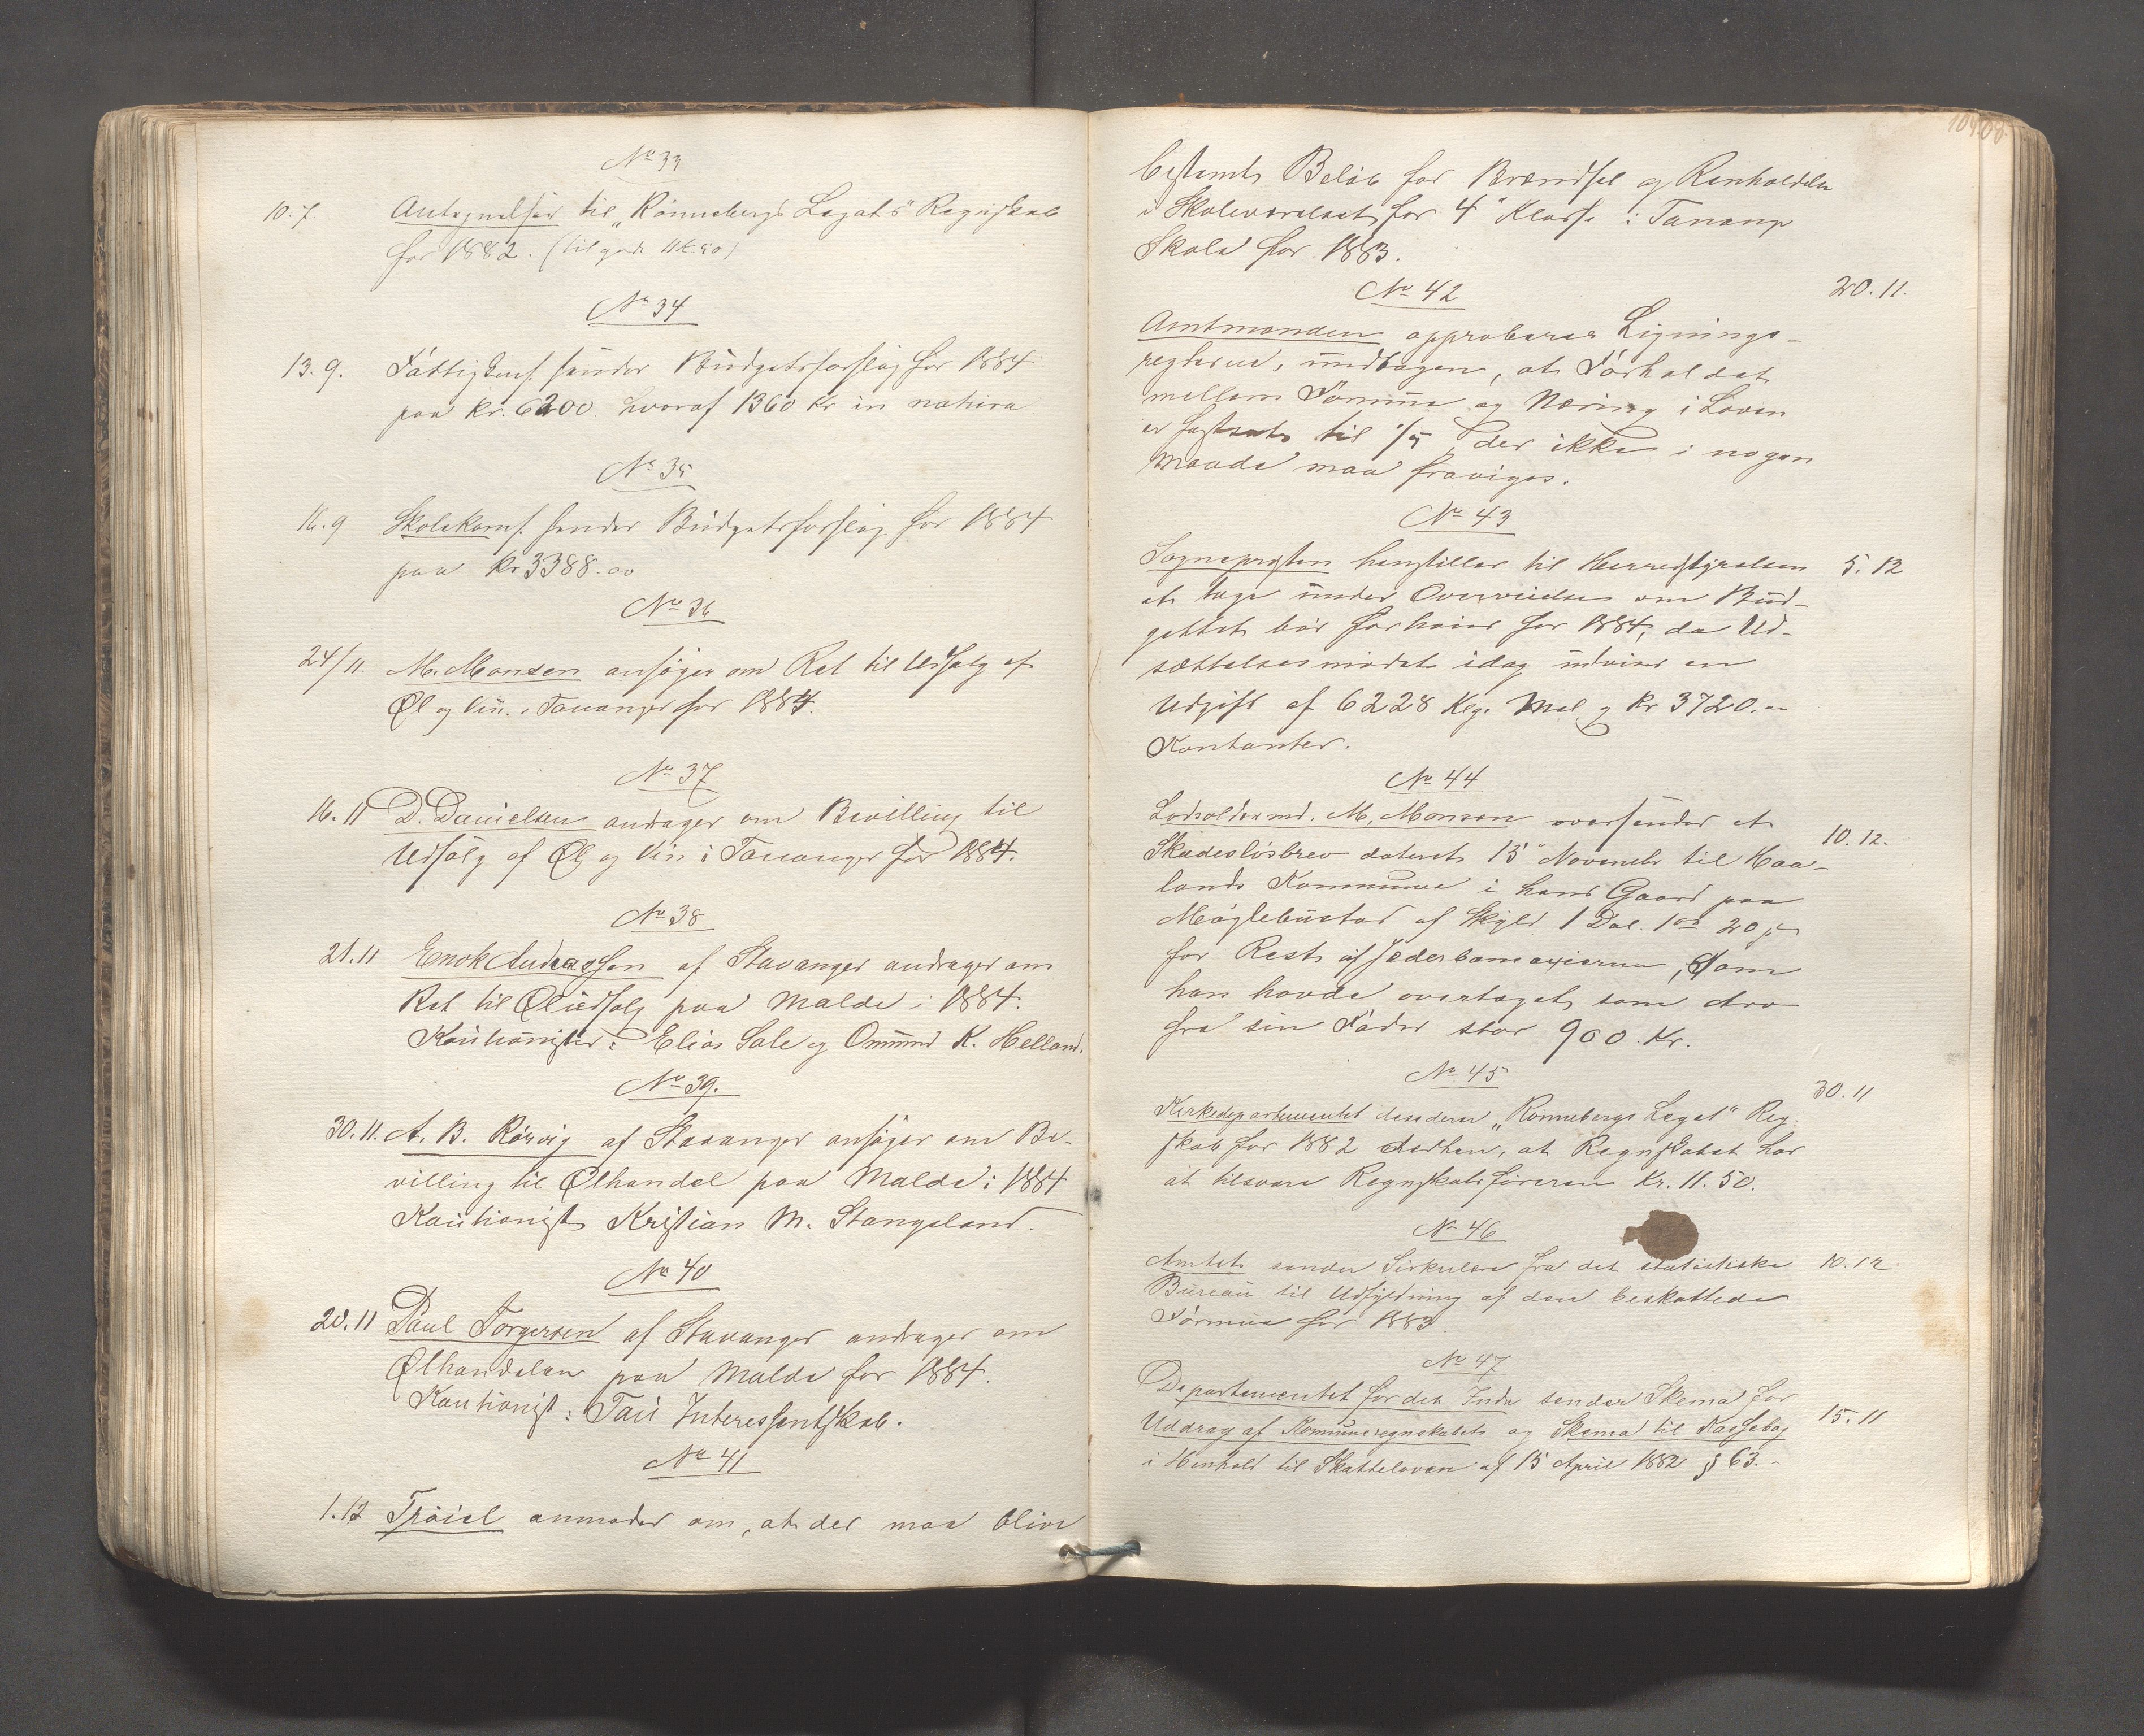 No 33
10.7. Antegnelser til „Rønnebergs Legats" Regnskab
for 1882. (tilgode 11k.50)
No 34
13.9. Fattigkomf. sender Budgetsforslag for 1884
paa Kr. 6200. hvoraf 1360 Kr in natura
No 35
16.9 Skolekomf. sender Budgetsforslag for 1884
paa Kr 3388.00
No 36
24/11. M. Monsen ansøger om Ret til Udsalg af
Øl og Vin i Tananger for 1884.
No 37
16.11 D. Danielsen andrager om Bevilling til
Udsalg af Øl og Vin i Tananger for 1884.
No 38
21.11 Enok Andreassen af Stavanger andrager om
Ret til Øludsalg paa Malde i 1884.
Kautionister: Elias Sole og Ommund K. Helland.
No 39.
30.11. A. B. Rørvig af Stavanger ansøger om Be-
villing til Ølhandel paa Malde i 1884
Kautionist Kristian M. Stangeland.
No 40
20.11 Paul Torgersen af Stavanger andrager om
Ølhandelen paa Malde for 1884.
Kautionist: Tau Interessentskab.
No 41
1.12 anmoder om, at der maa blive
bestemt Beløb for Brændsel og Renholdelse
i Skoleværelset for 4de Klasse i Tanang
Skole for 1883.
No 42 20.11.
Amtmanden approberer Lignings-
reglerne, undtagen, at Forholdet
mellem Formue og Næring i Loven
er fastsat til 1/5 der ikke i nogen
Maade maa fraviges.
No 43
Sognepresten henstiller til Herredstyrelsen 5.12
at tage under Overveielse om Bud-
gettet bør forhøies for 1884, da Ud-
sættelsesmødet idag udviser en
Udgift af 6228 Klg. Mel og Kr 3720.00
Kontanter.
No 44
Lodsoldermd. M. Monsen oversender et 10.12.
Skadesløsbrev dateret 15de Novembr til Haa-
lands Kommune i hans Gaard paa
Møglebustad af Skyld 1 Dal. 1 ort 20 s
for Rest af Jæderbaneaxierne, som
han havde overtaget som Arv
fra sin Fader stor 900 Kr.
No 45
Kirkedepartementet desiderer „Rønnebergs Legat" Reg. 30.11
skab for 1882 derhen, at Regnskabet har
at tilsvare Regnskabsføreren Kr. 11.50.
No 46
Amtet sender Sirkulære fra det statistiske 10.12
Bureau til Udfyldning af den beskattede
Formue for 1883
No 47
Departementet for det Indre sender Skema for
Uddrag af Kommuneregnskabet og Skema til Kassebog 15.11
i Henhold til Skatteloven af 15 April 1882 § 63.-